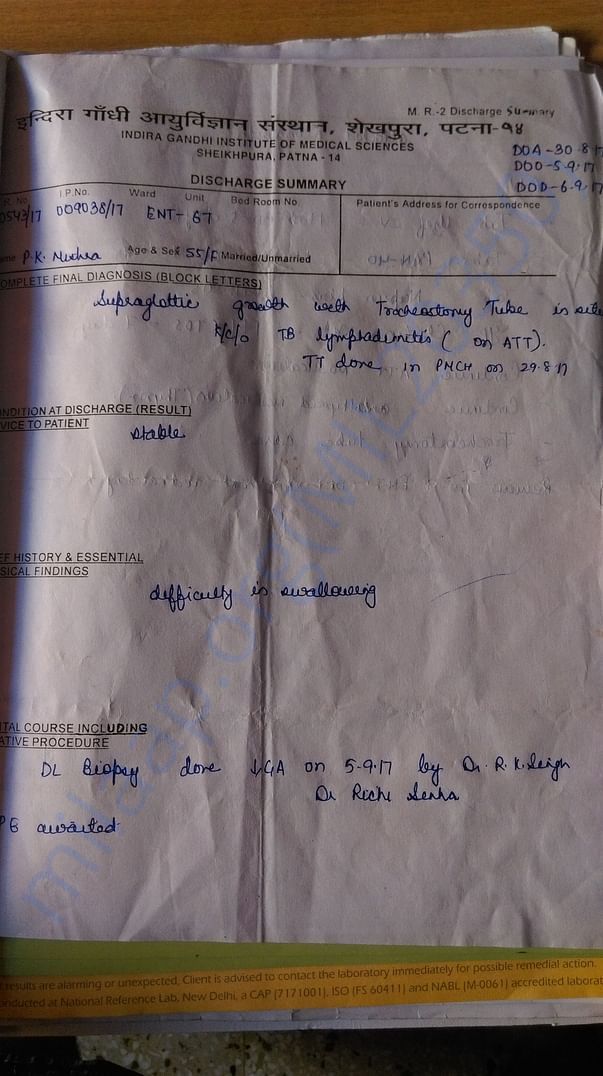 M. R.-2 Discharge Summary
इन्दिरा गाँधी आयुर्विज्ञान संस्थान, शेखपुरा, पटना-१४
INDIRA GANDHI INSTITUTE OF MEDICAL SCIENCES
SHEIKHPURA, PATNA - 14
DOA-30-8-17
DOO-5-9-17
DOD-6-9-17
DISCHARGE SUMMARY
R. No. I.P.No. Ward Unit Bed Room No. Patient's Address for Correspondence
0543/17 009038/17 ENT-67
P.K. Age & Sex 55/F Married/Unmarried
OMPLETE FINAL DIAGNOSIS (BLOCK LETTERS)
Supraglottic growth with Tracheostomy Tube in situ
K/c/o TB lymphadenitis (on ATT).
TT done in PMCH on 29.8.17
NDITION AT DISCHARGE (RESULT)
VICE TO PATIENT
stable
EF HISTORY & ESSENTIAL
SICAL FINDINGS
difficulty in swallowing
ITAL COURSE INCLUDING
ATIVE PROCEDURE
DL Biopsy done ↓GA on 5-9-17 by Dr. R.K. Singh
Dr Richi
PE awaited
results are alarming or unexpected, Client is advised to contact the laboratory immediately for possible remedial action.
onducted at National Reference Lab, New Delhi, a CAP (7171001), ISO (FS 60411) and NABL (M-0061) accredited laborat